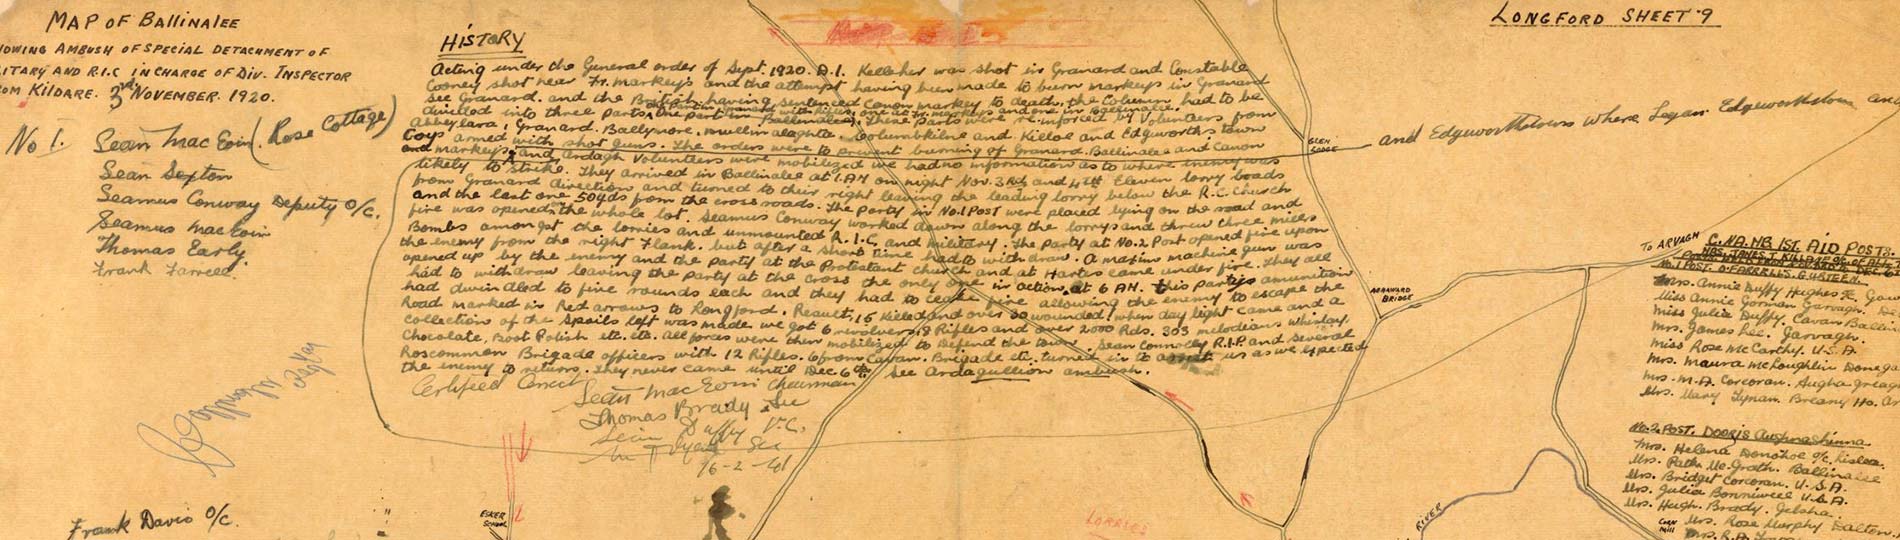 MAP OF BALLINALEE
OWING AMBUSH OF SPECIAL DETACHMENT OF
LITARY AND R.I.C IN CHARGE OF DIV. INSPECTOR
OM KILDARE. 3rd NOVEMBER. 1920.
No 1. Sean Mac Eoin (Rose Cottage)
Sean Sexton
Seamus Conway Deputy O/C.
Seamus Mac Eoin
Thomas Early
Frank Farrell.
Frank Davis O/C.
HISTORY
Acting under the General order of Sept. 1920. D.I. Kelleher was shot in Granard and Constable
Cooney shot near Fr. Markey's and the attempt having been made to burn Markeys in Granard
See Granard. and the British having sentenced Canon Markey to death, the Column had to be
divided into three parts, one part in Ballinalee. These parts were re-inforced by Volunteers from
Abbeylara, Granard. Ballymore. Mullinalaghta. Columbkille and Killoe and Edgeworths town
Coys armed with shot guns. The orders were to prevent burning of Granard. Ballinalee and Canon
Markeys and Ardagh Volunteers were mobilized we had no information as to where enemy was
likely to strike. They arrived in Ballinalee at 1. AM on night Nov. 3rd and 4th Eleven lorry loads
from Granard direction and turned to their right leaving the leading lorry below the R.C. Church
and the last one 50yds from the cross roads. The Party in No.1 Post were placed lying on the road and
fire was opened on the whole lot. Seamus Conway worked down along the lorrys and threw three mills
Bombs amongst the lorries and unmounted R.I.C. and military. The party at No.2 Post opened fire upon
the enemy from the right Flank. but after a short time had to withdraw. A maxim machine gun was
opened up by the enemy and the party at the Protestant church and at Hartes came under fire. They all
had to withdraw leaving the party at the Cross the only one in action at 6 AM. this partys amunition
had dwindled to five rounds each and they had to cease fire allowing the enemy to escape the
Road marked in Red arrows to Longford. Result, 15 Killed and over 30 wounded. when day light came and a
collection of the spoils left was made we got 6 revolvers, 8 Rifles and over 2000 Rds. 303 melodians whiskey,
Chocolate, Boot Polish etc. etc. All forces were then mobilized to Defend the town. Sean Connolly R.I.P and several
Roscommon Brigade officers with 12 Rifles. 6 from Cavan. Brigade etc. turned in to assist us as we expected
the enemy to return. They never came until Dec 6th. See Ardagullion ambush.
Certified Correct
Sean Mac Eoin Chairman
Thomas Brady Sec
Sean Duffy V.C.
16-2-41
LONGFORD SHEET 9
and Edgeworthstown where Legan Edgeworthstown and
GLEN LODGE
ARRAWARD BRIDGE
TO ARVAGH
ESKER SCHOOL
LORRIES
RIVER
CORN MILL
C. NA. MB 1ST. AID POSTS.
No. 1 POST. O'FARRELL'S. GURTEEN.
Mrs. Annie Duffy Hughes
Miss Annie Gorman Garvagh.
Miss Julia Duffy. Cavan Ballin
Mrs. James Lee. Garvagh.
Miss Rose McCarthy. U.S.A.
Mrs. Maura McLoughlin Donega
Mrs. M.A. Corcoran. Augha greag
Mrs. Mary Tynan. Breany Ho.
No. 2. POST. DOORIS Aughnashinna
Mrs. Helena Donohoe O/C. Lislea.
Mrs. Patk. Mc Grath. Ballinalee
Mrs. Bridget Corcoran. U.S.A.
Mrs. Julia Bonniwell U.S.A.
Mrs. Hugh. Brady. Gelsha.
Mrs. Rose Murphy Dalton.